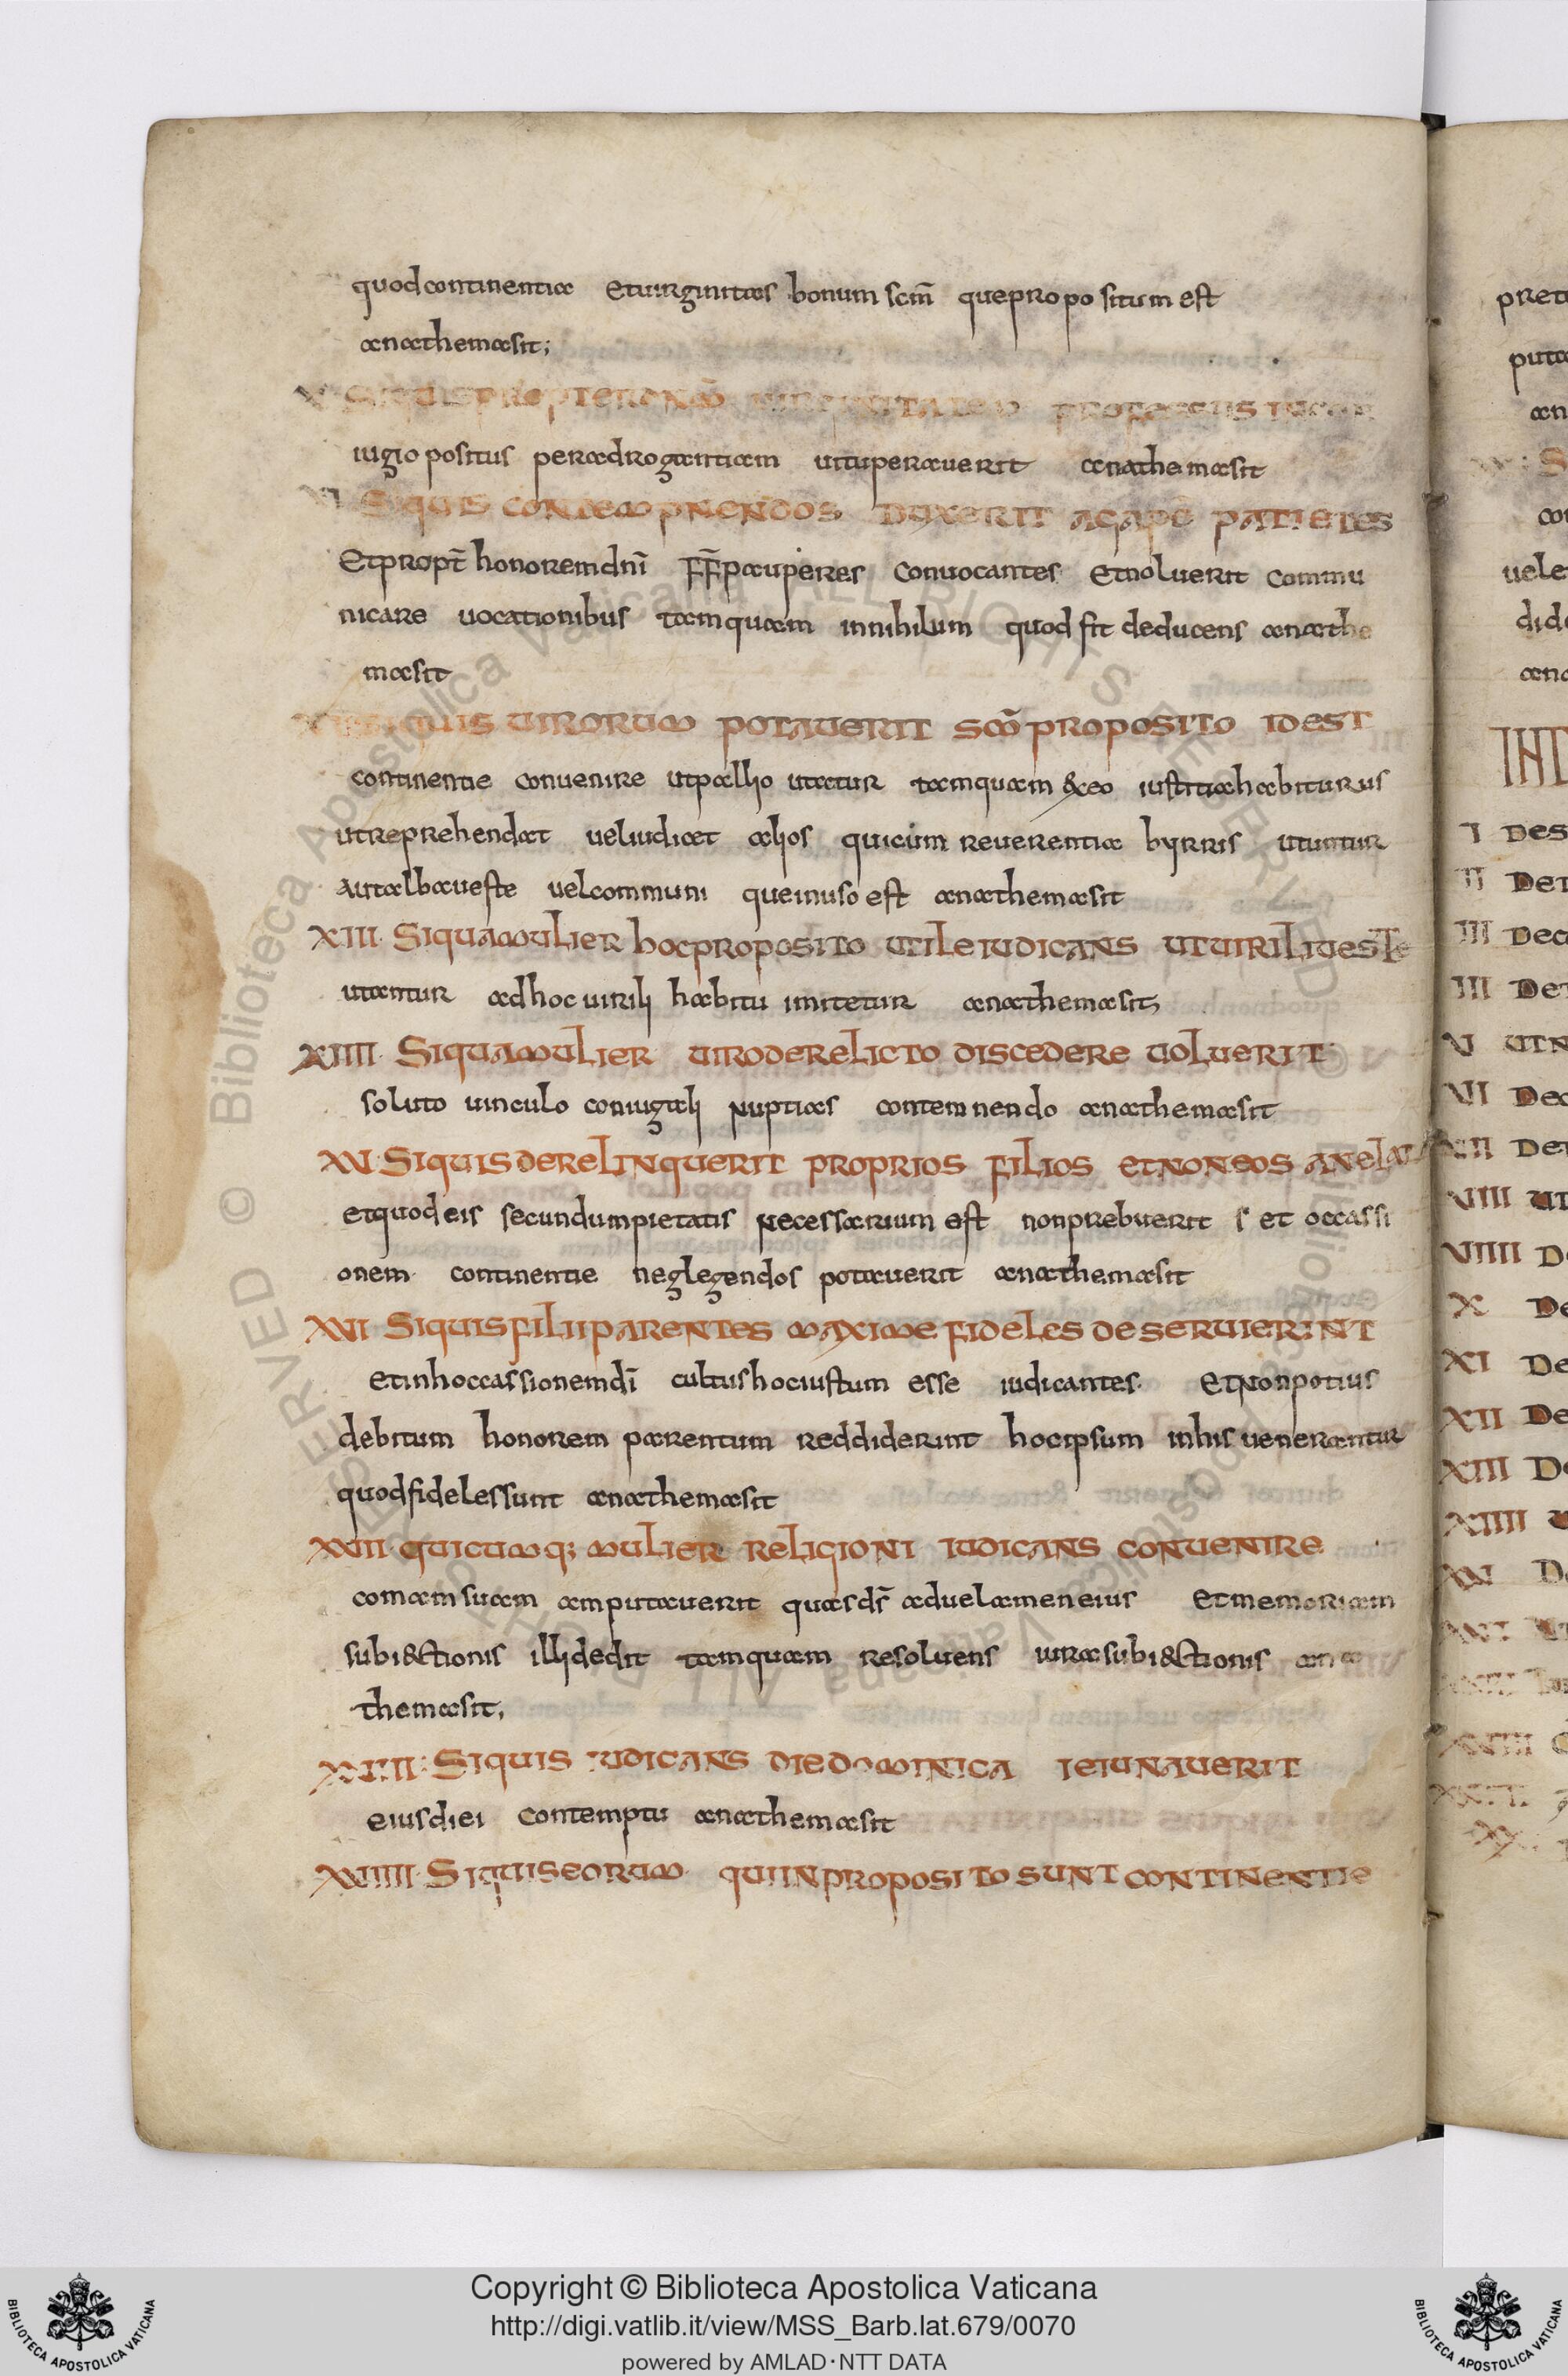 quod continentiae et uirginitatis bonum scm̄ que propositum est
anathemasit;
X Siquis propter dn̄m uirginitatem professus in con
iugio positus per adrogantiam uituperauerit anathemasit
XI Siquis contempnendos duxerit agapē patietes
Et propt̄ honorem dnī FF̄ pauperes conuocantes et noluerit commu
nicare uocationibus tamquam in nihilum quod fit deducens anathe
masit
quis uirorum potauerit scō proposito id est
continentie conuenire ut pallio utatur tamquam & eo iustitia habiturus
ut reprehendat uel iudicet alios qui cum reuerentia byrris utuntur
aut alba ueste uel communi que in uso est anathemasit
XIII. Siqua mulier hoc proposito utile iudicans ut uirili ueste
utantur ad hoc uirili habitu imitetur anathemasit;
XIIII. Siqua mulier uiro derelicto discedere uoluerit
soluto uinculo coniugali nuptias contemnendo anathemasit
XV. Siquis derelinquerit proprios filios et non eos
et quod eis secundum pietatis necessarium est non prebuerit s et occassi
onem continentie neglegendos potauerit anathemasit
XVI Siquis filii parentes maxime fideles deseruierint
et in hoccassionem dī cultus hoc iustum esse iudicantes. Et non potius
debitum honorem parentum reddiderint hoc ipsum in his uenerantur
quod fideles sunt anathemasit
XVII quicumq; mulier religioni iudicans conuenire
comam suam amputauerit quas ds̄ ad uelamen eius et memoriam
subi&ctionis illi dedit tamquam resoluens iura subi&ctionis ana
themasit;
XVIII: Siquis iudicans die dominica ieiunauerit
eius diei contemptu anathemasit
XVIIII. Siquis eorum qui in proposito sunt continentie
Copyright © Biblioteca Apostolica Vaticana
http://digi.vatlib.it/view/MSS_Barb.lat.679/0070
powered by AMLAD·NTT DATA
BIBLIOTECA APOSTOLICA VATICANA
BIBLIOTECA APOSTOLICA VATICANA